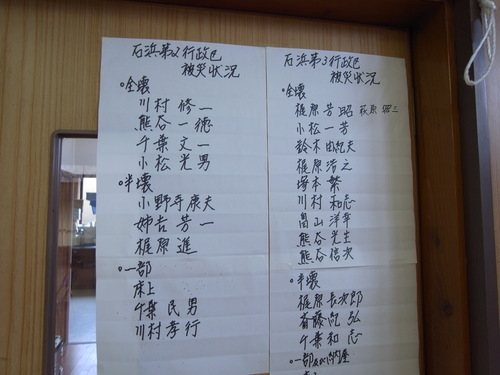 石浜第2行政区
被災状況
○全壊
川村 修一
熊谷 一徳
千葉 文一
小松 光男
○半壊
小野寺康夫
姉吉 芳一
梶原 進
○一部
床上
千葉 民男
川村孝行
石浜第3行政区
被災状況
○全壊
梶原 芳昭 萩原
小松 一芳
鈴木由紀夫
梶原 浩之
塚本 繁
川村 和志
畠山 洋幸
熊谷 光生
熊谷 信次
○半壊
梶原 長次郎
斎藤 弘
千葉 和志
○一部 納屋